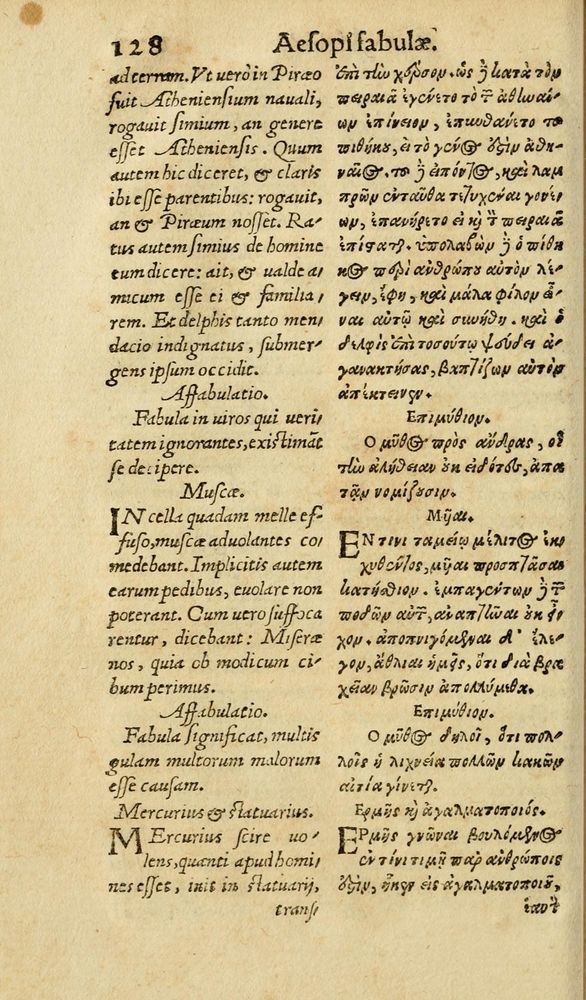 128 Aesopi fabulæ.
ad terram. Vt uerò in Piræo
fuit Atheniensium nauali,
rogauit simium, an genere
esset Atheniensis. Quum
autem hic diceret, & claris
ibi esse parentibus: rogauit,
an & Piræum nosset. Ra-
tus autem simius de homine
eum dicere: ait, & ualde a-
micum esse ei & familia-
rem. Et delphis tanto men-
dacio indignatus, submer-
gens ipsum occidit.
Affabulatio.
Fabula in uiros qui ueri-
tatem ignorantes, existimãt
se decipere.
Muscæ.
IN cella quadam melle ef-
fuso, muscæ aduolantes co-
medebant. Implicitis autem
earum pedibus, euolare non
poterant. Cum uero suffoca-
rentur, dicebant: Miseræ
nos, quia ob modicum ci-
bum perimus.
Affabulatio.
Fabula significat, multis
gulam multorum malorum
esse causam.
Mercurius & statuarius.
MErcurius scire uo-
lens, quanti apud homi-
nes esset, iuit in statuarij,
trans-
ἐπὶ τὴν χέρσον. ὡς δὲ κατὰ τὸν
πειραιᾶ ἐγένετο τὸ τῶν ἀθηναί-
ων ἐπίνειον, ἐπυνθάνετο τοῦ
πιθήκου, εἰ τὸ γένος ἐστὶν ἀθη-
ναῖος. τοῦ δὲ εἰπόντος, καὶ λαμ
πρῶν ἐνταῦθα τετυχέναι γονέ-
ων, ἐπανήρετο εἰ καὶ τὸν πειραιᾶ
ἐπίσταται. ὑπολαβὼν δὲ ὁ πίθη
κος περὶ ἀνθρώπου αὐτὸν λέ-
γειν, ἔφη, καὶ μάλα φίλον εἶ-
ναι αὐτῷ καὶ συνήθη. καὶ ὁ
δελφὶς ἐπὶ τοσούτῳ ψεύδει ἀ-
γανακτήσας, βαπτίζων αὐτὸν
ἀπέκτεινεν.
Επιμύθιον.
Ο μῦθος πρὸς ἄνδρας, οἳ
τὴν ἀλήθειαν οὐκ εἰδότες, ἀπα
τᾶν νομίζουσιν.
Μῦαι.
ΕΝ τινι ταμείῳ μέλιτος ἐκ-
χυθέντος, μῦαι προσπτᾶσαι
κατήσθιον. ἐμπαγέντων δὲ τῶν
ποδῶν αὐτῶν, ἀναπτῆναι οὐκ εἶ-
χον. ἀποπνιγόμεναι δ' ἔλε-
γον, ἄθλιαι ἡμεῖς, ὅτι διὰ βρα
χεῖαν βρῶσιν ἀπολλύμεθα.
Επιμύθιον.
Ο μῦθος δηλοῖ, ὅτι πολ-
λοῖς ἡ λιχνεία πολλῶν κακῶν
αἰτία γίνεται.
Ερμῆς καὶ ἀγαλματοποιός.
ΕΡμῆς γνῶναι βουλόμενος
ἐν τίνι τιμῇ παρ' ἀνθρώποις
ἐστὶν, ἧκεν εἰς ἀγαλματοποιοῦ,
ἑαυτὸν